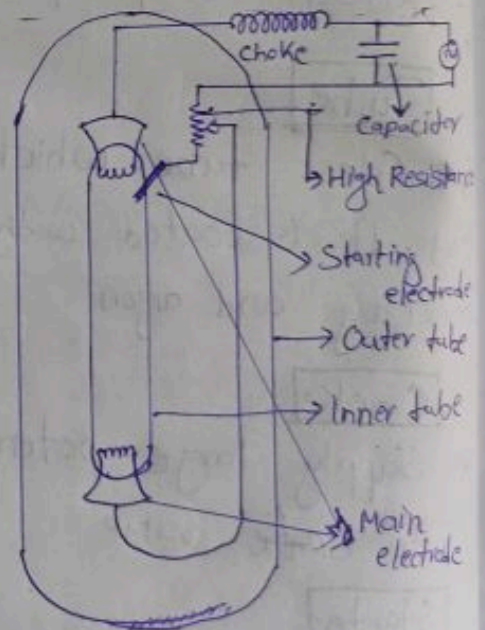 choke
Capacitor
High Resistance
Starting
electrode
Outer tube
Inner tube
Main
electrode